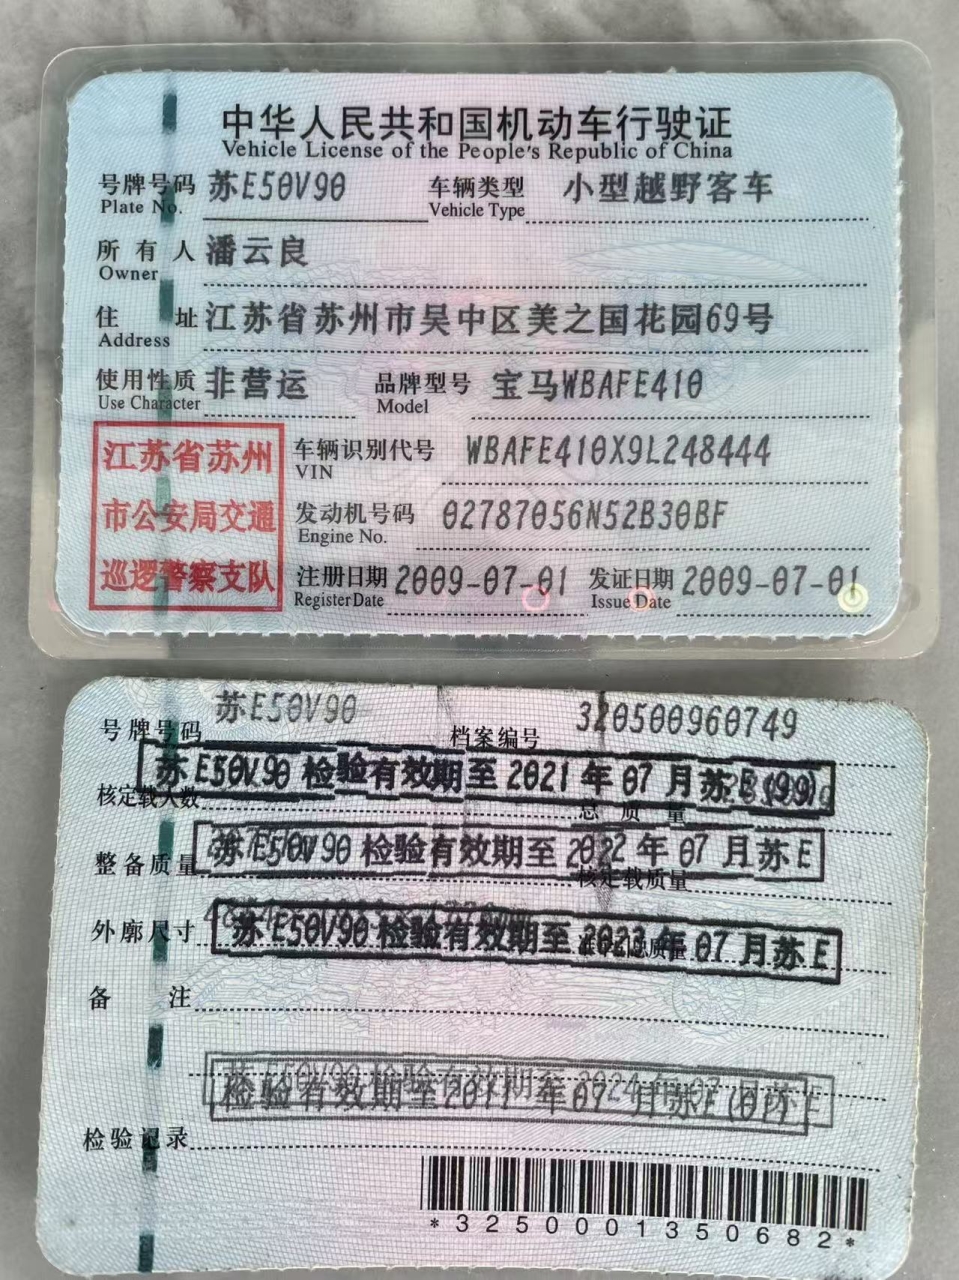 中华人民共和国机动车行驶证
Vehicle License of the People's Republic of China
号牌号码 苏E50V90 车辆类型 小型越野客车
Plate No. Vehicle Type
所有人 潘云良
Owner
住址 江苏省苏州市吴中区美之国花园69号
Address
使用性质 非营运 品牌型号 宝马WBAFE410
Use Character Model
江苏省苏州
市公安局交通
巡逻警察支队
车辆识别代号 WBAFE410X9L248444
VIN
发动机号码 02787056N52B30BF
Engine No.
注册日期 2009-07-01 发证日期 2009-07-01
Register Date Issue Date
号牌号码 苏E50V90 档案编号 320500960749
苏E50V90 检验有效期至 2021 年 07 月 苏E(99)
核定载人数 总质量
苏E50V90 检验有效期至 2022 年 07 月苏E
整备质量 核定载质量
苏E50V90 检验有效期至 2023 年 07 月苏E
外廓尺寸
备注
苏E50V90 检验有效期至 2024 年 07 月苏E
检验有效期至2011 年07 月苏E(01)
检验记录
*3250001350682*